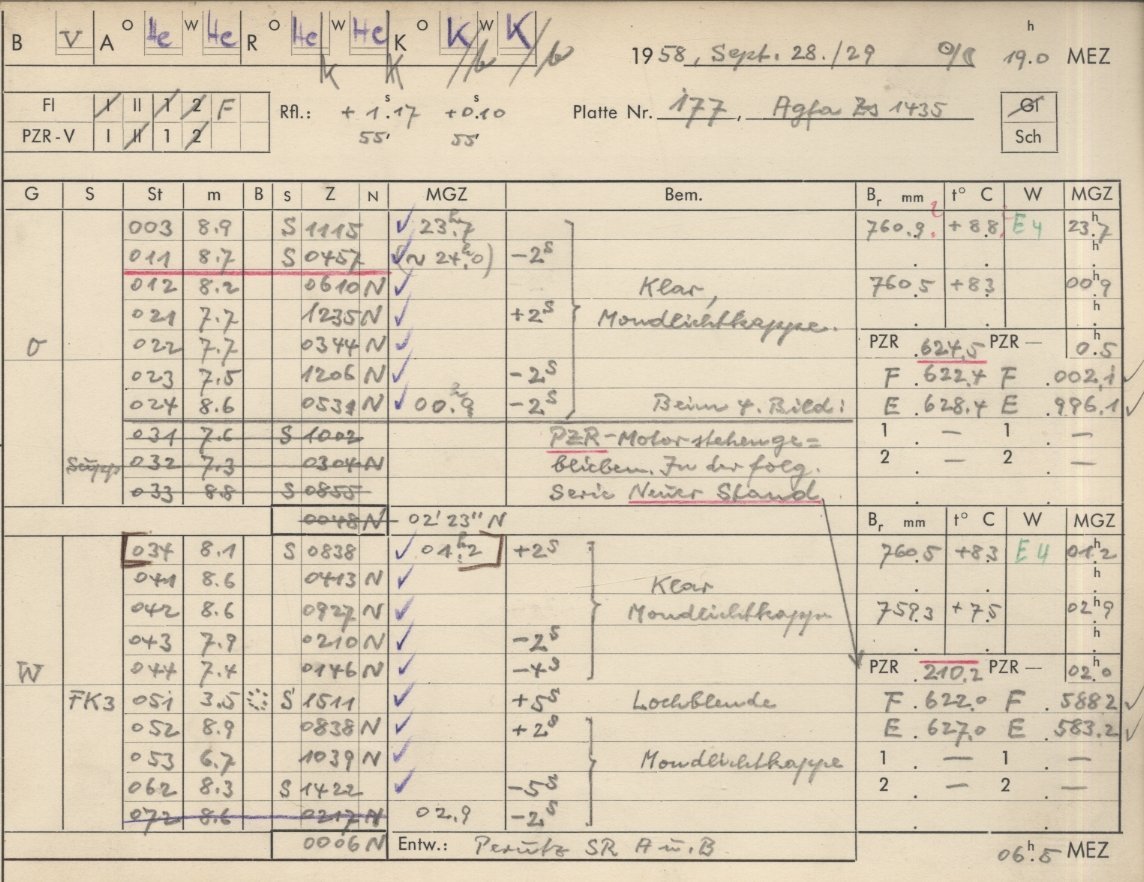 B V A O He W He R O He W He K O K W K
1958, Sept. 28./29 19.0 h MEZ
Fl I II 1 2 F Rfl.: + 1.17 s +0.10 s Platte Nr. 177, Agfa Zs 1435 Gl
PZR-V I II 1 2 55' 55' Sch
G S St m B S Z N MGZ Bem. Br mm t° C W MGZ
003 8.9 S 1115 ✓ 23.7 h 760.9 +8.8 E4 23.7 h
011 8.7 S 0457 ✓ (~ 24.0 h) -2s
012 8.2 0610 N ✓ Klar, 760.5 +83 00.9 h
021 7.7 1235 N ✓ +2s Mondlichtkappe.
O 022 7.7 0344 N ✓ PZR .624.5 PZR — 0.5 h
023 7.5 1206 N ✓ -2s F .622.4 F .002.1 ✓
024 8.6 0531 N ✓ 00.9 h -2s Beim 4. Bild: E .628.4 E .996.1 ✓
031 7.6 S 1002 PZR-Motor stehenge= 1 — 1 —
032 7.3 0304 N blieben. In der folg. 2 — 2 —
033 8.8 S 0855 Serie Neuer Stand
0048 N 02' 23" N Br mm t° C W MGZ
034 8.1 S 0838 ✓ 01.2 h +2s 760.5 +83 E4 01.2 h
041 8.6 0413 N ✓ Klar
042 8.6 0927 N ✓ Mondlichtkappe 759.3 +7.5 02.9 h
043 7.9 0210 N ✓ -2s
W 044 7.4 0146 N ✓ -4s PZR .210.2 PZR — 02.0 h
FK3 051 3.5 S 1511 +5s Lochblende F .622.0 F .588.2 ✓
052 8.9 0838 N ✓ +2s E .627.0 E .583.2 ✓
053 6.7 1039 N ✓ Mondlichtkappe 1 — 1 —
062 8.3 S 1422 ✓ -5s 2 — 2 —
072 8.6 0217 N 02.9 -2s
0006 N Entw.: Perutz SR A u. B 06.5 h MEZ